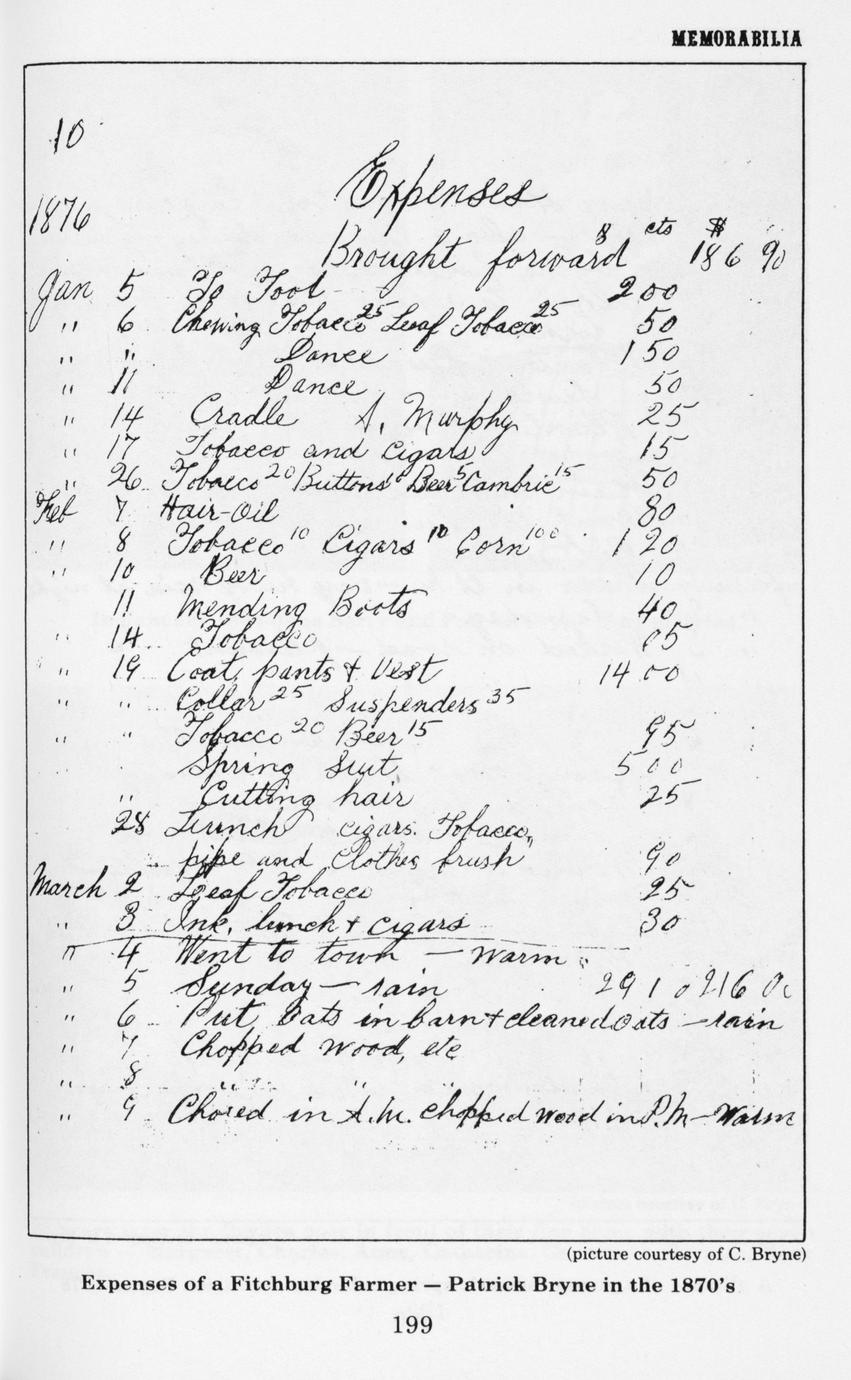 MEMORABILIA
10
Expenses
1876
$ cts $
Brought forward 186 90
Jan 5 To Tool 2 00
" 6 Chewing Tobacco 25 Leaf Tobacco 25 50
" " Dance 1 50
" 11 Dance 50
" 14 Cradle A. Murphy 25
" 17 Tobacco and cigars 15
" 26 Tobacco 20 Buttons 10 Beer 5 Cambric 15 50
Feb 7 Hair-Oil 80
" 8 Tobacco 10 Cigars 10 Corn 100 1 20
" 10 Beer 10
11 Mending Boots 40
" 14 Tobacco 05
" 19 Coat, pants & Vest 14 00
" " Collar 25 Suspenders 35
" " Tobacco 20 Beer 15 95
Spring suit 5 00
" Cutting hair 25
28 Lunch cigars. Tobacco,
pipe and clothes brush 90
March 2 Leaf Tobacco 25
" 3 Ink, lunch & cigars 30
" 4 Went to town — warm
" 5 Sunday — rain 29 10 216 00
" 6 Put oats in barn & cleaned oats — rain
" 7 Chopped wood, etc
" 8 " " "
" 9 Chored in A.M. chopped wood in P.M — Warm
(picture courtesy of C. Bryne)
Expenses of a Fitchburg Farmer — Patrick Bryne in the 1870's
199